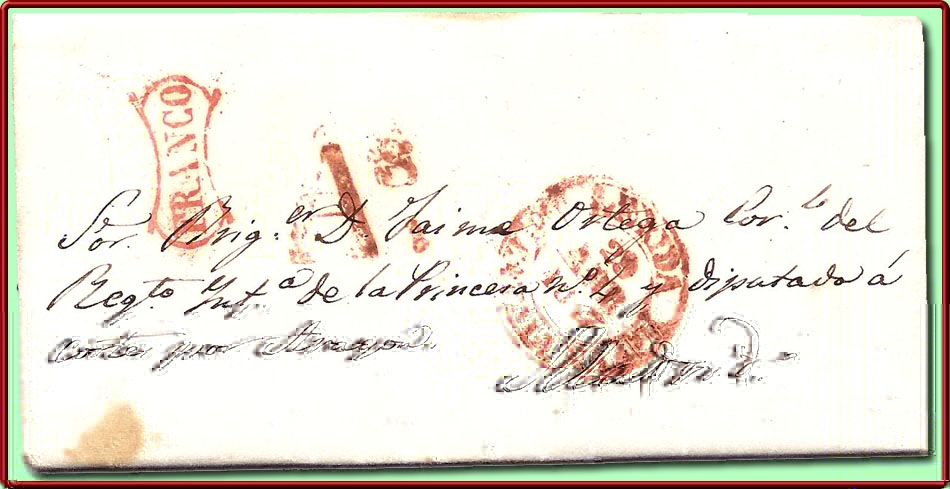 FRANCO
1 Rs
Sor. Brig.er D. Jaime Ortega Cor.l del
Regto Inf.a de la Princesa nº. 4 y diputado á
cortes por
Madrid.